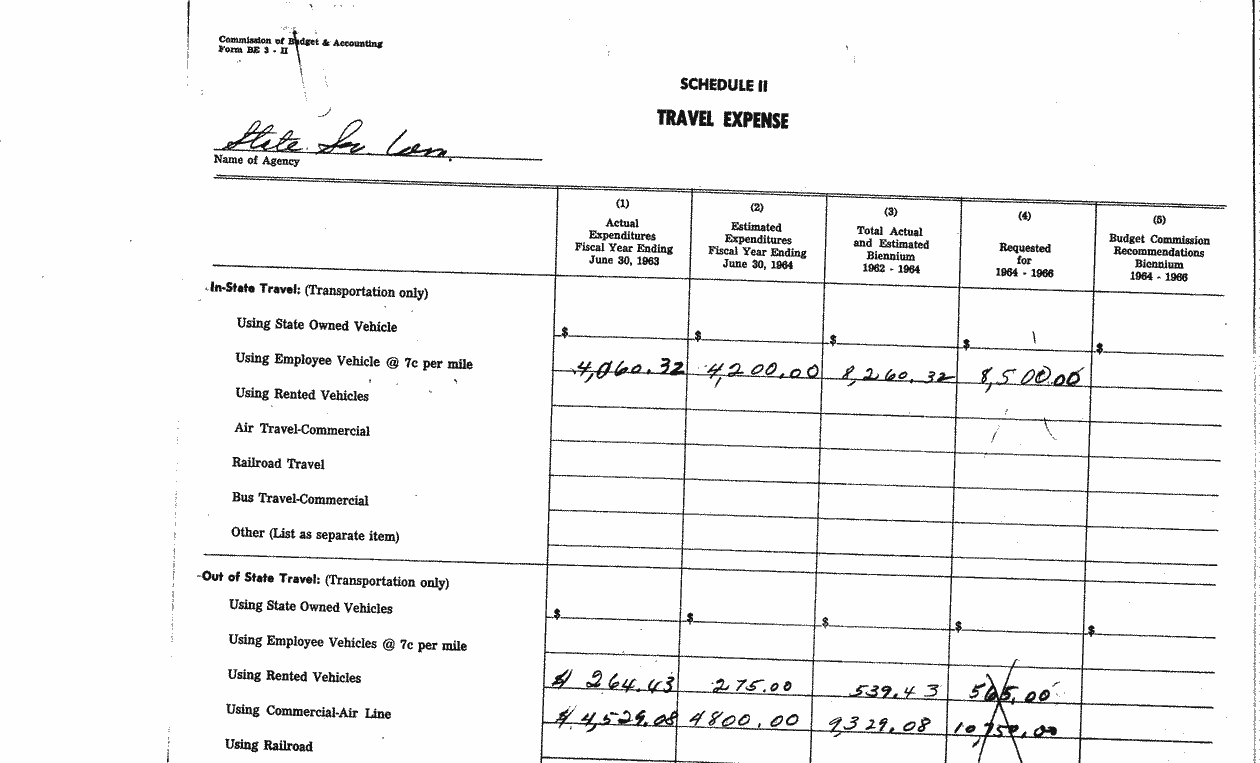 Commission of Budget & Accounting
Form BE 3 - II
SCHEDULE II
TRAVEL EXPENSE
State Sov Com.
Name of Agency
(1) (2) (3) (4) (5)
Actual Expenditures Fiscal Year Ending June 30, 1963
Estimated Expenditures Fiscal Year Ending June 30, 1964
Total Actual and Estimated Biennium 1962 - 1964
Requested for 1964 - 1966
Budget Commission Recommendations Biennium 1964 - 1966
In-State Travel: (Transportation only)
Using State Owned Vehicle $ $ $ $ $
Using Employee Vehicle @ 7c per mile 4,060.32 4,200.00 8,260.32 8,500.00
Using Rented Vehicles
Air Travel-Commercial
Railroad Travel
Bus Travel-Commercial
Other (List as separate item)
Out of State Travel: (Transportation only)
Using State Owned Vehicles $ $ $ $ $
Using Employee Vehicles @ 7c per mile
Using Rented Vehicles $ 264.43 275.00 539.43 565.00
Using Commercial-Air Line $ 4,529.08 4800.00 9,329.08 10,750.00
Using Railroad